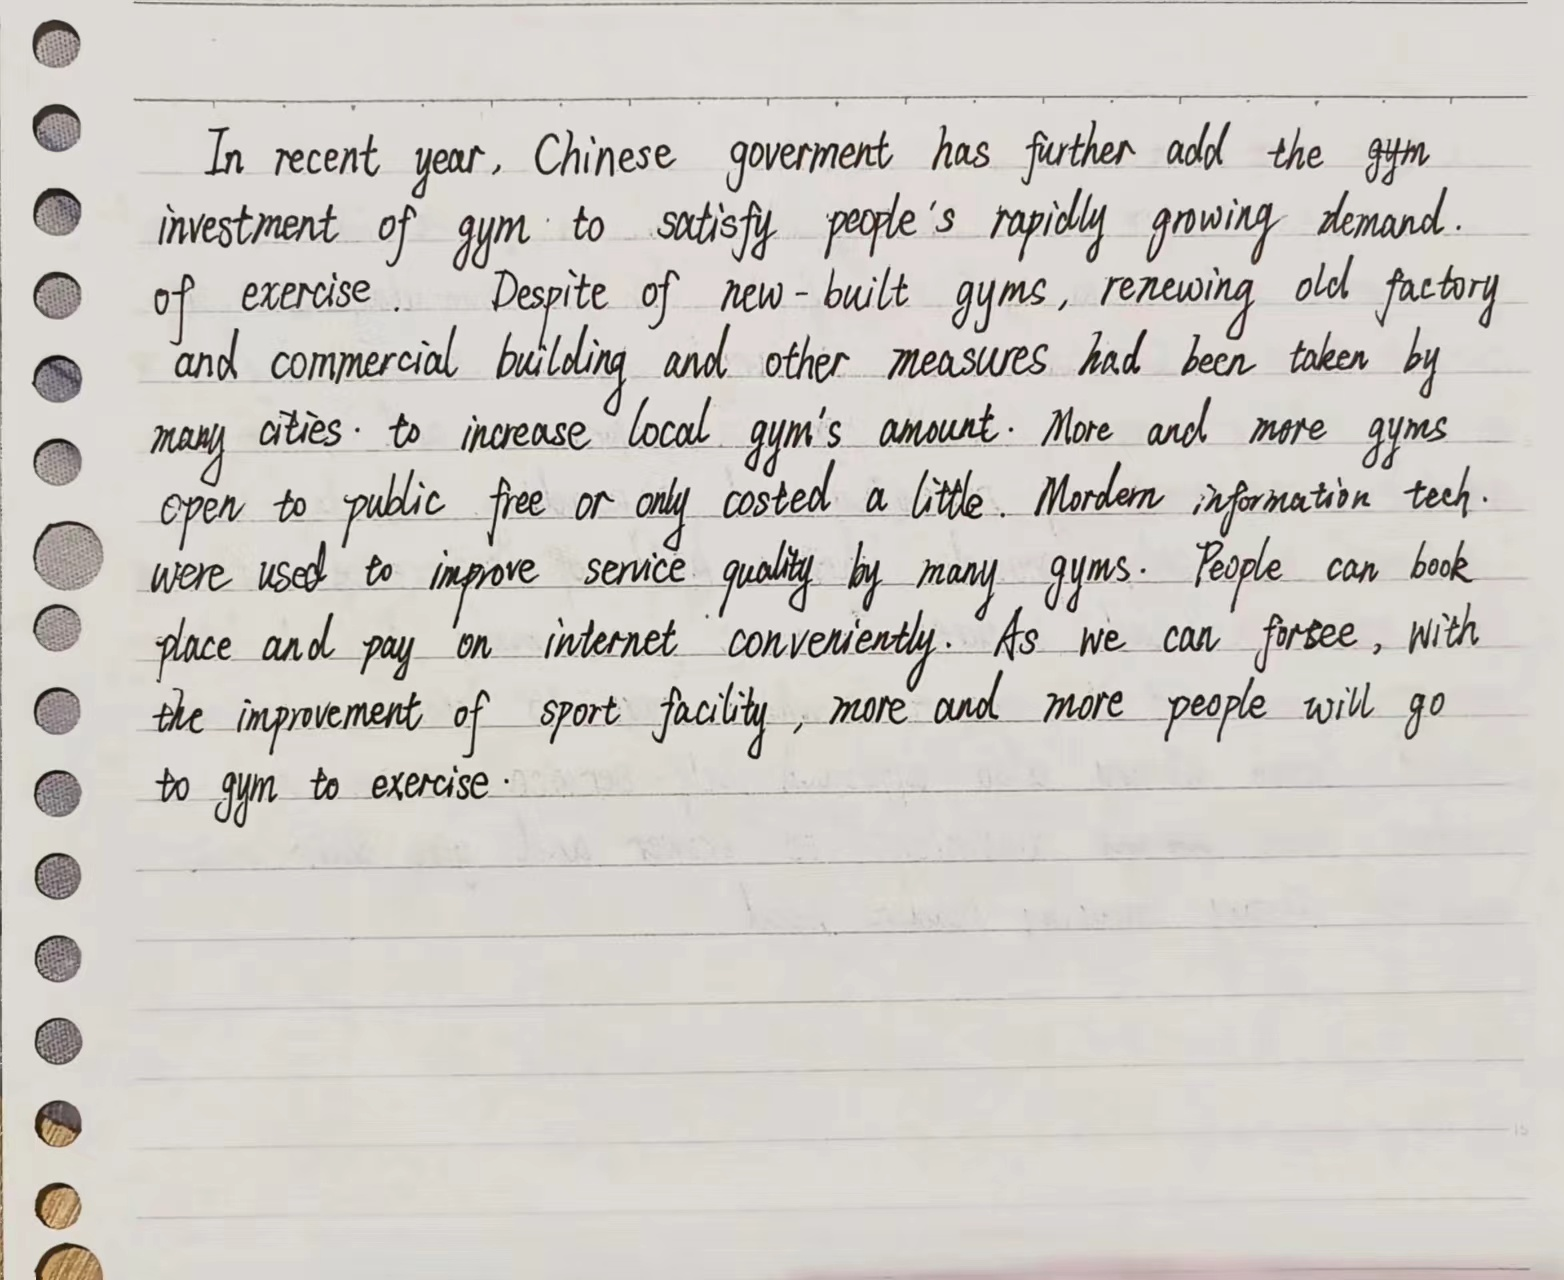 In recent year, Chinese goverment has further add the gym
investment of gym to satisfy people's rapidly growing demand.
of exercise. Despite of new-built gyms, renewing old factory
and commercial building and other measures had been taken by
many cities. to increase local gym's amount. More and more gyms
open to public free or only costed a little. Mordern information tech.
were used to improve service quality by many gyms. People can book
place and pay on internet conveniently. As we can forsee, with
the improvement of sport facility, more and more people will go
to gym to exercise.